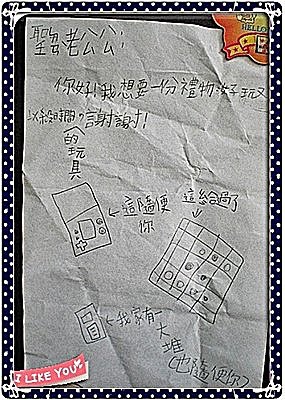 聖誕老公公:
你好!我想要一份禮物:好玩又
謝謝!
的玩具
←這隨便你
這給過了
←我家有一大堆(也隨便你)
HELLO
I LIKE YOU